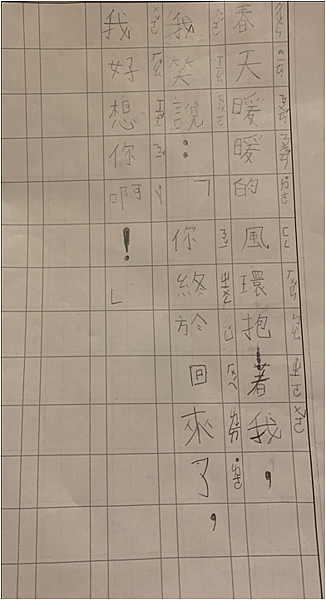 春天暖暖的風環抱著我，
我笑說：「你終於回來了，
我好想你啊！」